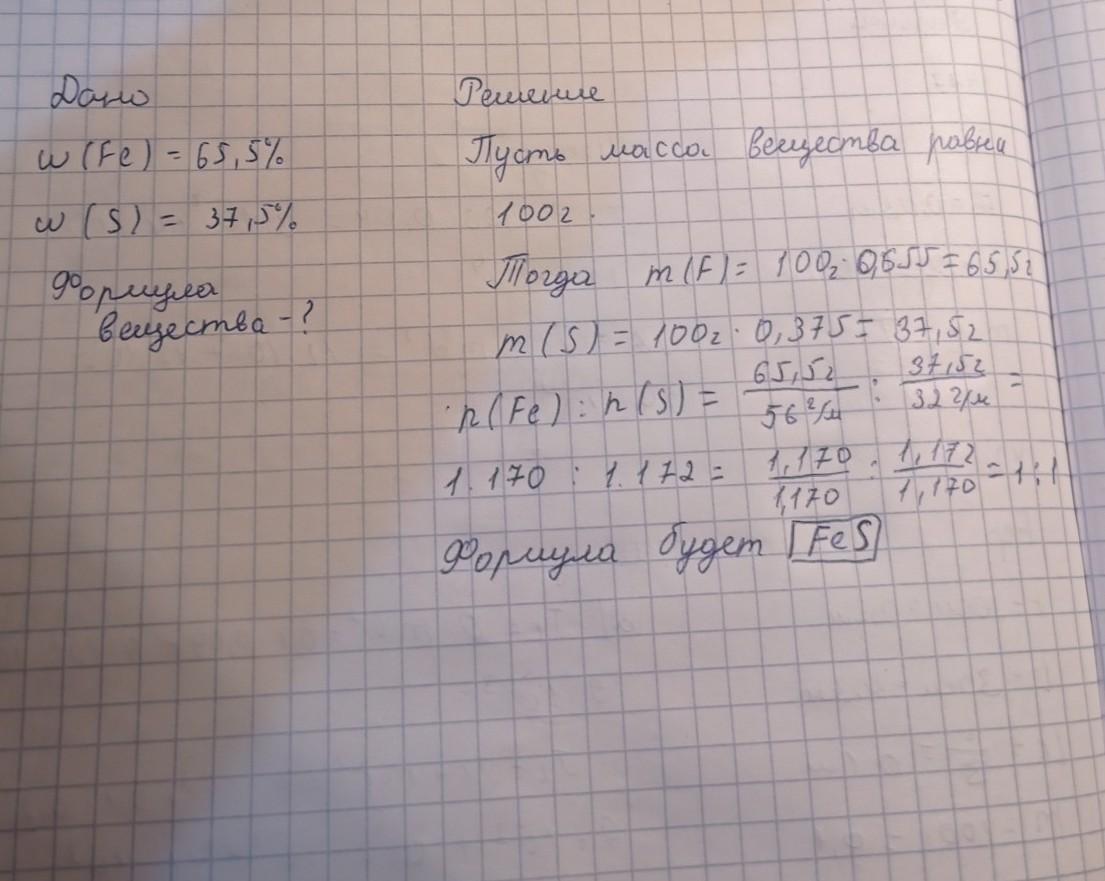 Дано
w (Fe) = 65,5%
w (S) = 37,5%
Формула
вещества - ?
Решение
Пусть масса вещества равна
100г.
Тогда m(F) = 100г · 0,655 = 65,5г
m(S) = 100г · 0,375 = 37,5г
n(Fe) : n(S) = 65,5г / 56 г/м : 37,5г / 32 г/м =
1.170 : 1.172 = 1,170 / 1,170 : 1,172 / 1,170 = 1:1
Формула будет FeS